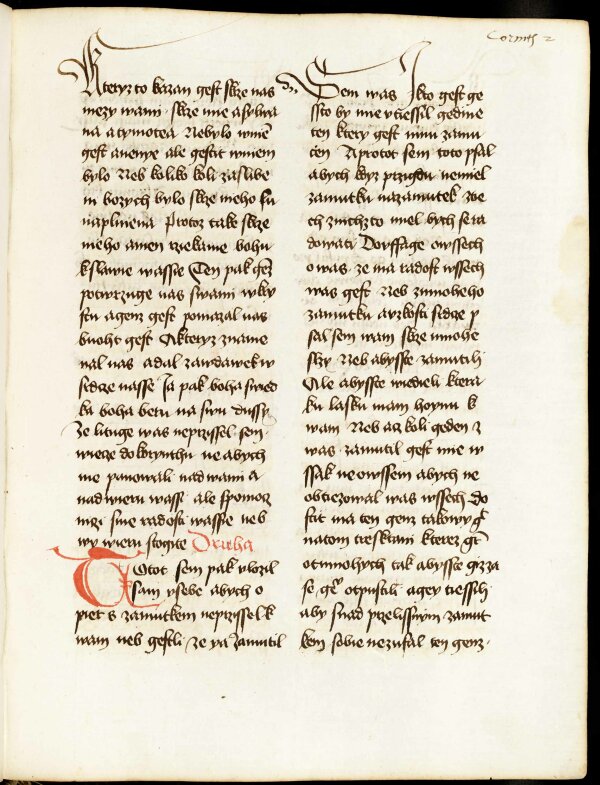 Corinth 2
Kteryz to kazan gest skrze nas
mezy wami · skrze mne asylwa
na atymotea Nebylo wniem
gest anenye ale gestit wniem
bylo Neb koliko koli zaslibe
ni bozych bylo skrze neho su
naplniena Protoz take skrze
nieho amen rziekame bohu
kslawie nassie Ten pak genz
potwrzuge nas swami wkry
stu agenz gest pomazal nas
buoht gest Akteryz zname
nal nas adal zawdawek w
srdcze nasse Ja pak boha swied
ka boha beru na swu dussy
Ze lituge was neprzissel sem
wiecze dokorynthu ne abych
me panowali nadwami a
nad wieru wassi ale spomoz
nizi sme radosti wassie neb
wy wieru stogite Druha
Totot sem pak vlozil
sam vsebe abych o
piet s zamutkem neprzissel k
wam neb gestli ze ya zamutil
Sem was Ikto gest ge
ssto by mie vtiessil gedine
ten ktery gest mnu zamu
cen Aprotot sem toto psal
abych kdyz przigdu nemiel
zamutku nazamutek zwe
ch znichzto miel bych se ra
dowati Dowffage owssech
owas ze ma radost wssech
was gest Neb zmnoheho
zamutku avzkosti srdcze p
sal sem wam skrze mnohe
slzy Neb abysste zamutili
Ale abysste wiedieli ktera
ku lasku mam hoynu k
wam Neb acz koli geden z
was zamutil gest mie w
ssak ne owssem abych ne
obtiezowal was wssech Do
stit ma ten genz takowy gest
natom tresktani kterez gest
otmnohych tak abysste gizza
se gemu otpustili agey tiessili
aby snad przelissnym zamut
kem sobie nezufal ten genz